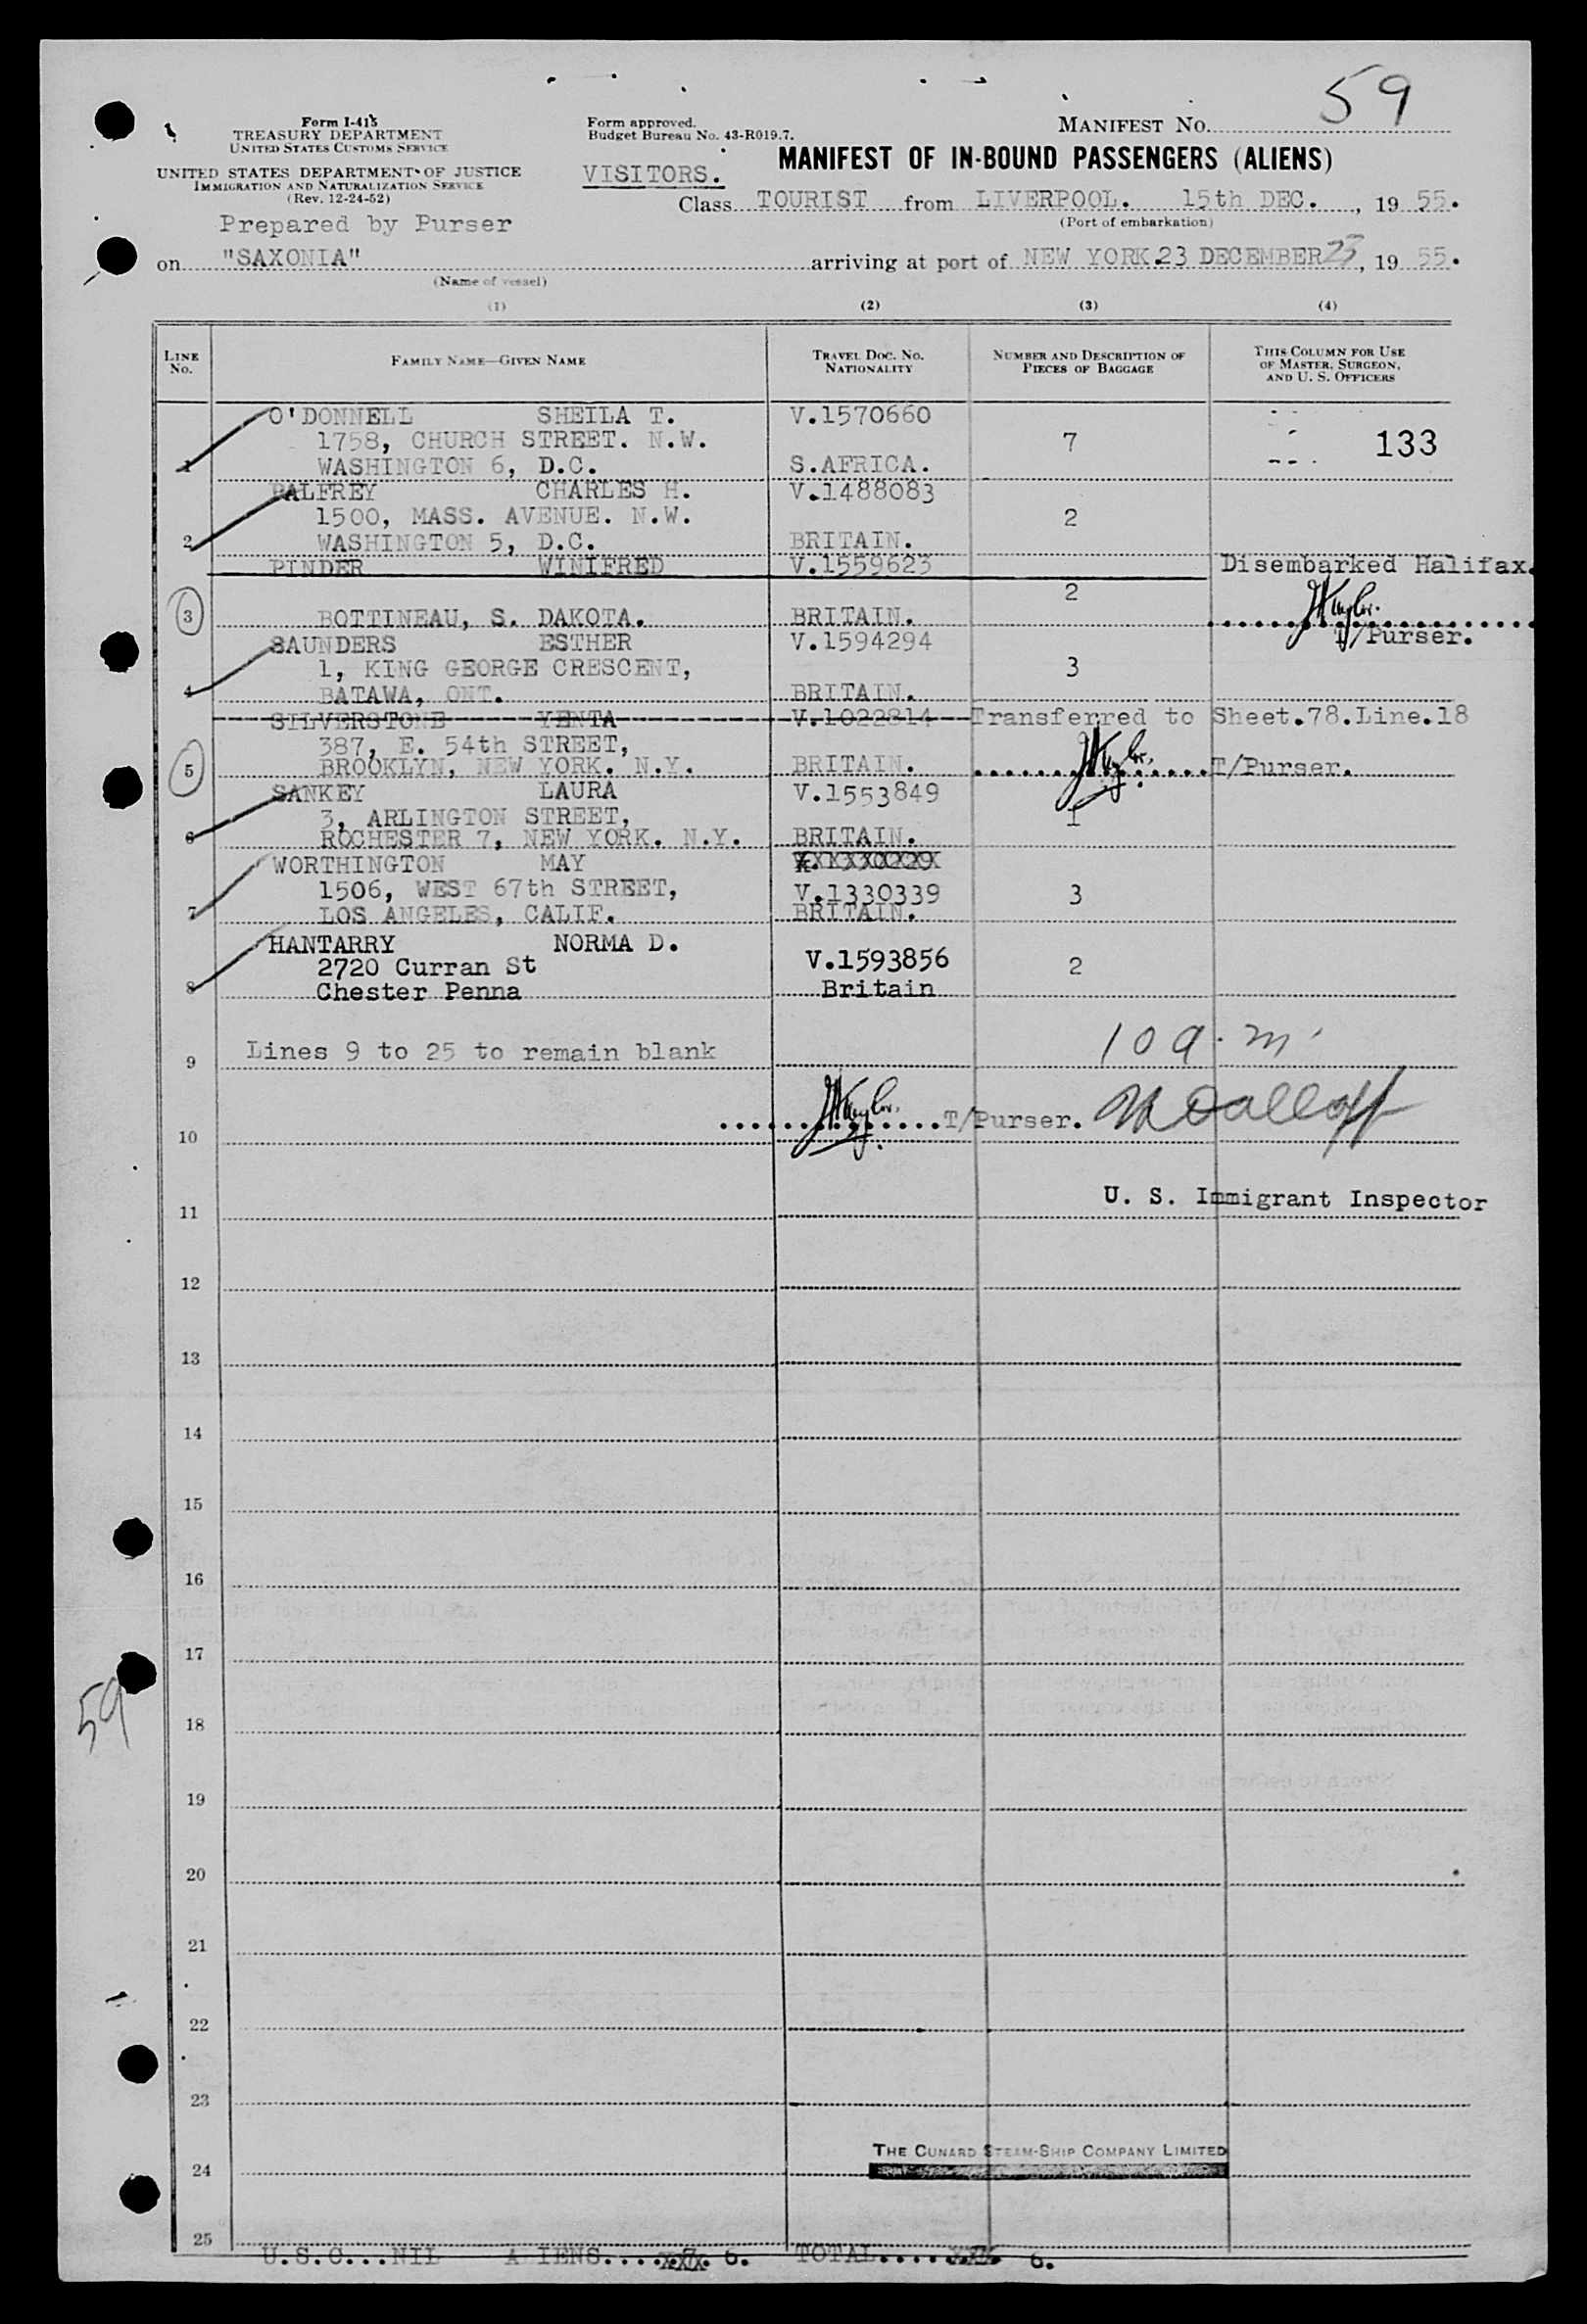 59
Form I-415
TREASURY DEPARTMENT
UNITED STATES CUSTOMS SERVICE
UNITED STATES DEPARTMENT OF JUSTICE
IMMIGRATION AND NATURALIZATION SERVICE
(Rev. 12-24-52)
Prepared by Purser
Form approved.
Budget Bureau No. 43-R019.7.
MANIFEST NO.
VISITORS.
MANIFEST OF IN-BOUND PASSENGERS (ALIENS)
Class TOURIST from LIVERPOOL. 15th DEC. , 19 55.
(Port of embarkation)
on "SAXONIA" arriving at port of NEW YORK.23 DECEMBER 23, 19 55.
(Name of vessel)
(1) (2) (3) (4)
LINE NO. FAMILY NAME—GIVEN NAME TRAVEL DOC. NO. NATIONALITY NUMBER AND DESCRIPTION OF PIECES OF BAGGAGE THIS COLUMN FOR USE OF MASTER, SURGEON, AND U. S. OFFICERS
O'DONNELL SHEILA T. V.1570660
1758, CHURCH STREET. N.W. 7 133
1 WASHINGTON 6, D.C. S.AFRICA.
PALFREY CHARLES H. V.1488083
1500, MASS. AVENUE. N.W. 2
2 WASHINGTON 5, D.C. BRITAIN.
PINDER WINIFRED V.1559623 Disembarked Halifax.
2
3 BOTTINEAU, S. DAKOTA. BRITAIN.
SAUNDERS ESTHER V.1594294 T/Purser.
1, KING GEORGE CRESCENT, 3
4 BATAWA, ONT. BRITAIN.
SILVERSTONE YENTA V.1022814 Transferred to Sheet.78.Line.18
387, E. 54th STREET,
5 BROOKLYN, NEW YORK. N.Y. BRITAIN. T/Purser.
SANKEY LAURA V.1553849
3, ARLINGTON STREET, 1
6 ROCHESTER 7, NEW YORK. N.Y. BRITAIN.
WORTHINGTON MAY
1506, WEST 67th STREET, V.1330339 3
7 LOS ANGELES, CALIF. BRITAIN.
HANTARRY NORMA D.
2720 Curran St V.1593856 2
8 Chester Penna Britain
10 a.m.
9 Lines 9 to 25 to remain blank
T/Purser.
10
U. S. Immigrant Inspector
11
12
13
14
15
16
17
59
18
19
20
21
22
23
THE CUNARD STEAM-SHIP COMPANY LIMITED
24
25
U.S.C...NIL A IENS..... 6. TOTAL..... 6.